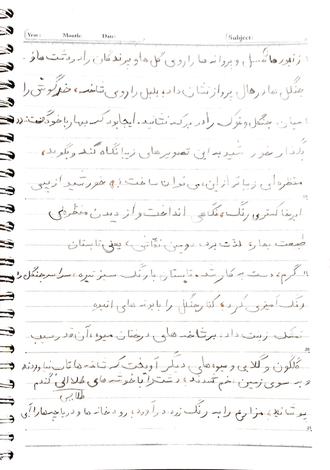 Year: Month: Date: Subject:
زنبورها عسل و پروانه ها را روی گل ها و پرندگان را در دشت ها و
جنگل ها در حال پرواز نشان داد، بلبل را روی شاخه، خرگوش را
میان جنگل و را در برکه نقاشید. اینجا بود که بهار با خود گفت:
بگذار خورشید به این تصویر های زیبا نگاه کند و بگوید،
منظره ای زیبا تر از این، می توان ساخت؟ خورشید از پس
ابرها کمتری رنگ، نگاهی انداخت و از دیدن منظره ی
طبیعت بهار، لذت برد. دومین نقاش، یعنی تابستان
گرم، دست به کار شد. تابستان با رنگ سبز تیره، سراسر جنگل را
رنگ آمیزی کرد، کنار جنگل را با بوته های انبوه
تمشک زینت داد. بر شاخه های درختان میوه، آن قدر سیب
گلگون و گلابی و میوهای دیگر آویخت که شاخه ها تاب نیاوردند
و به سوی زمین، خم شدند، دشت را با خوشه های طلایی گندم
طلایی
پوشاند، مزارع را به رنگ زرد در آورد، رودخانه ها و دریاچه ها را آبی